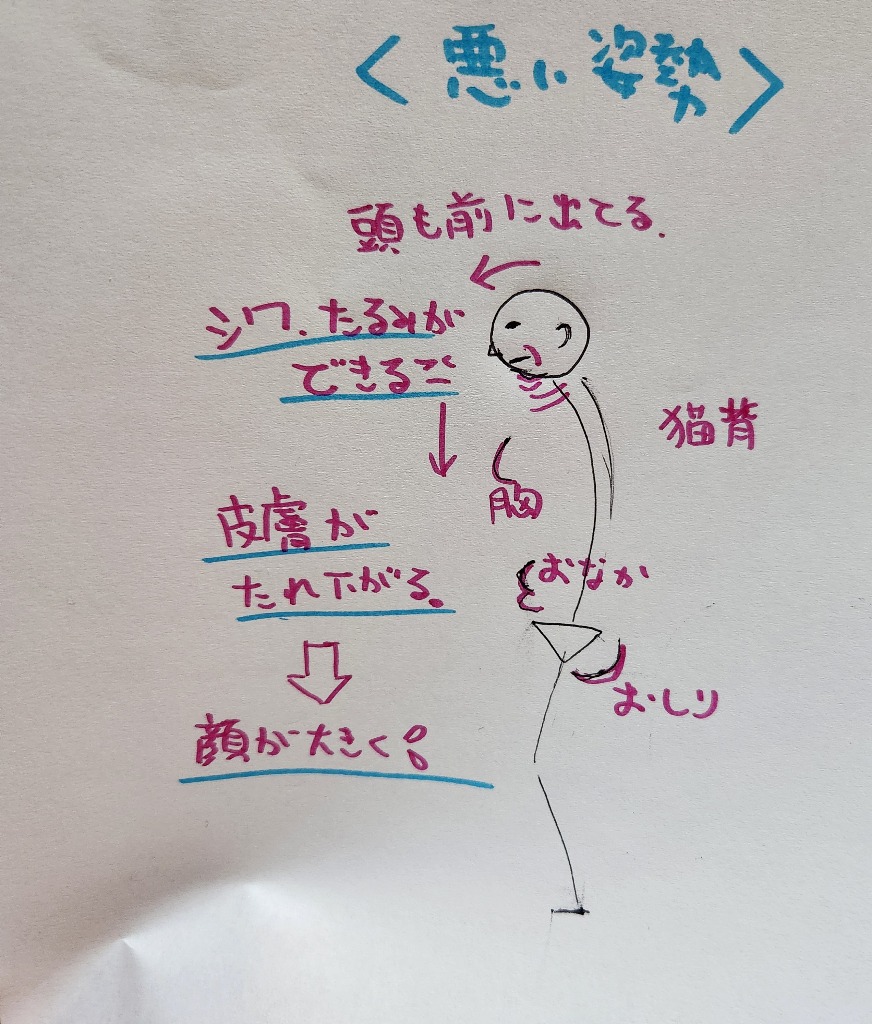 <悪い姿勢>
頭も前に出てる.
シワ、たるみが
できるここ
猫背
胸
皮膚が
たれ下がる。
おなか
おしり
顔が大きく!!